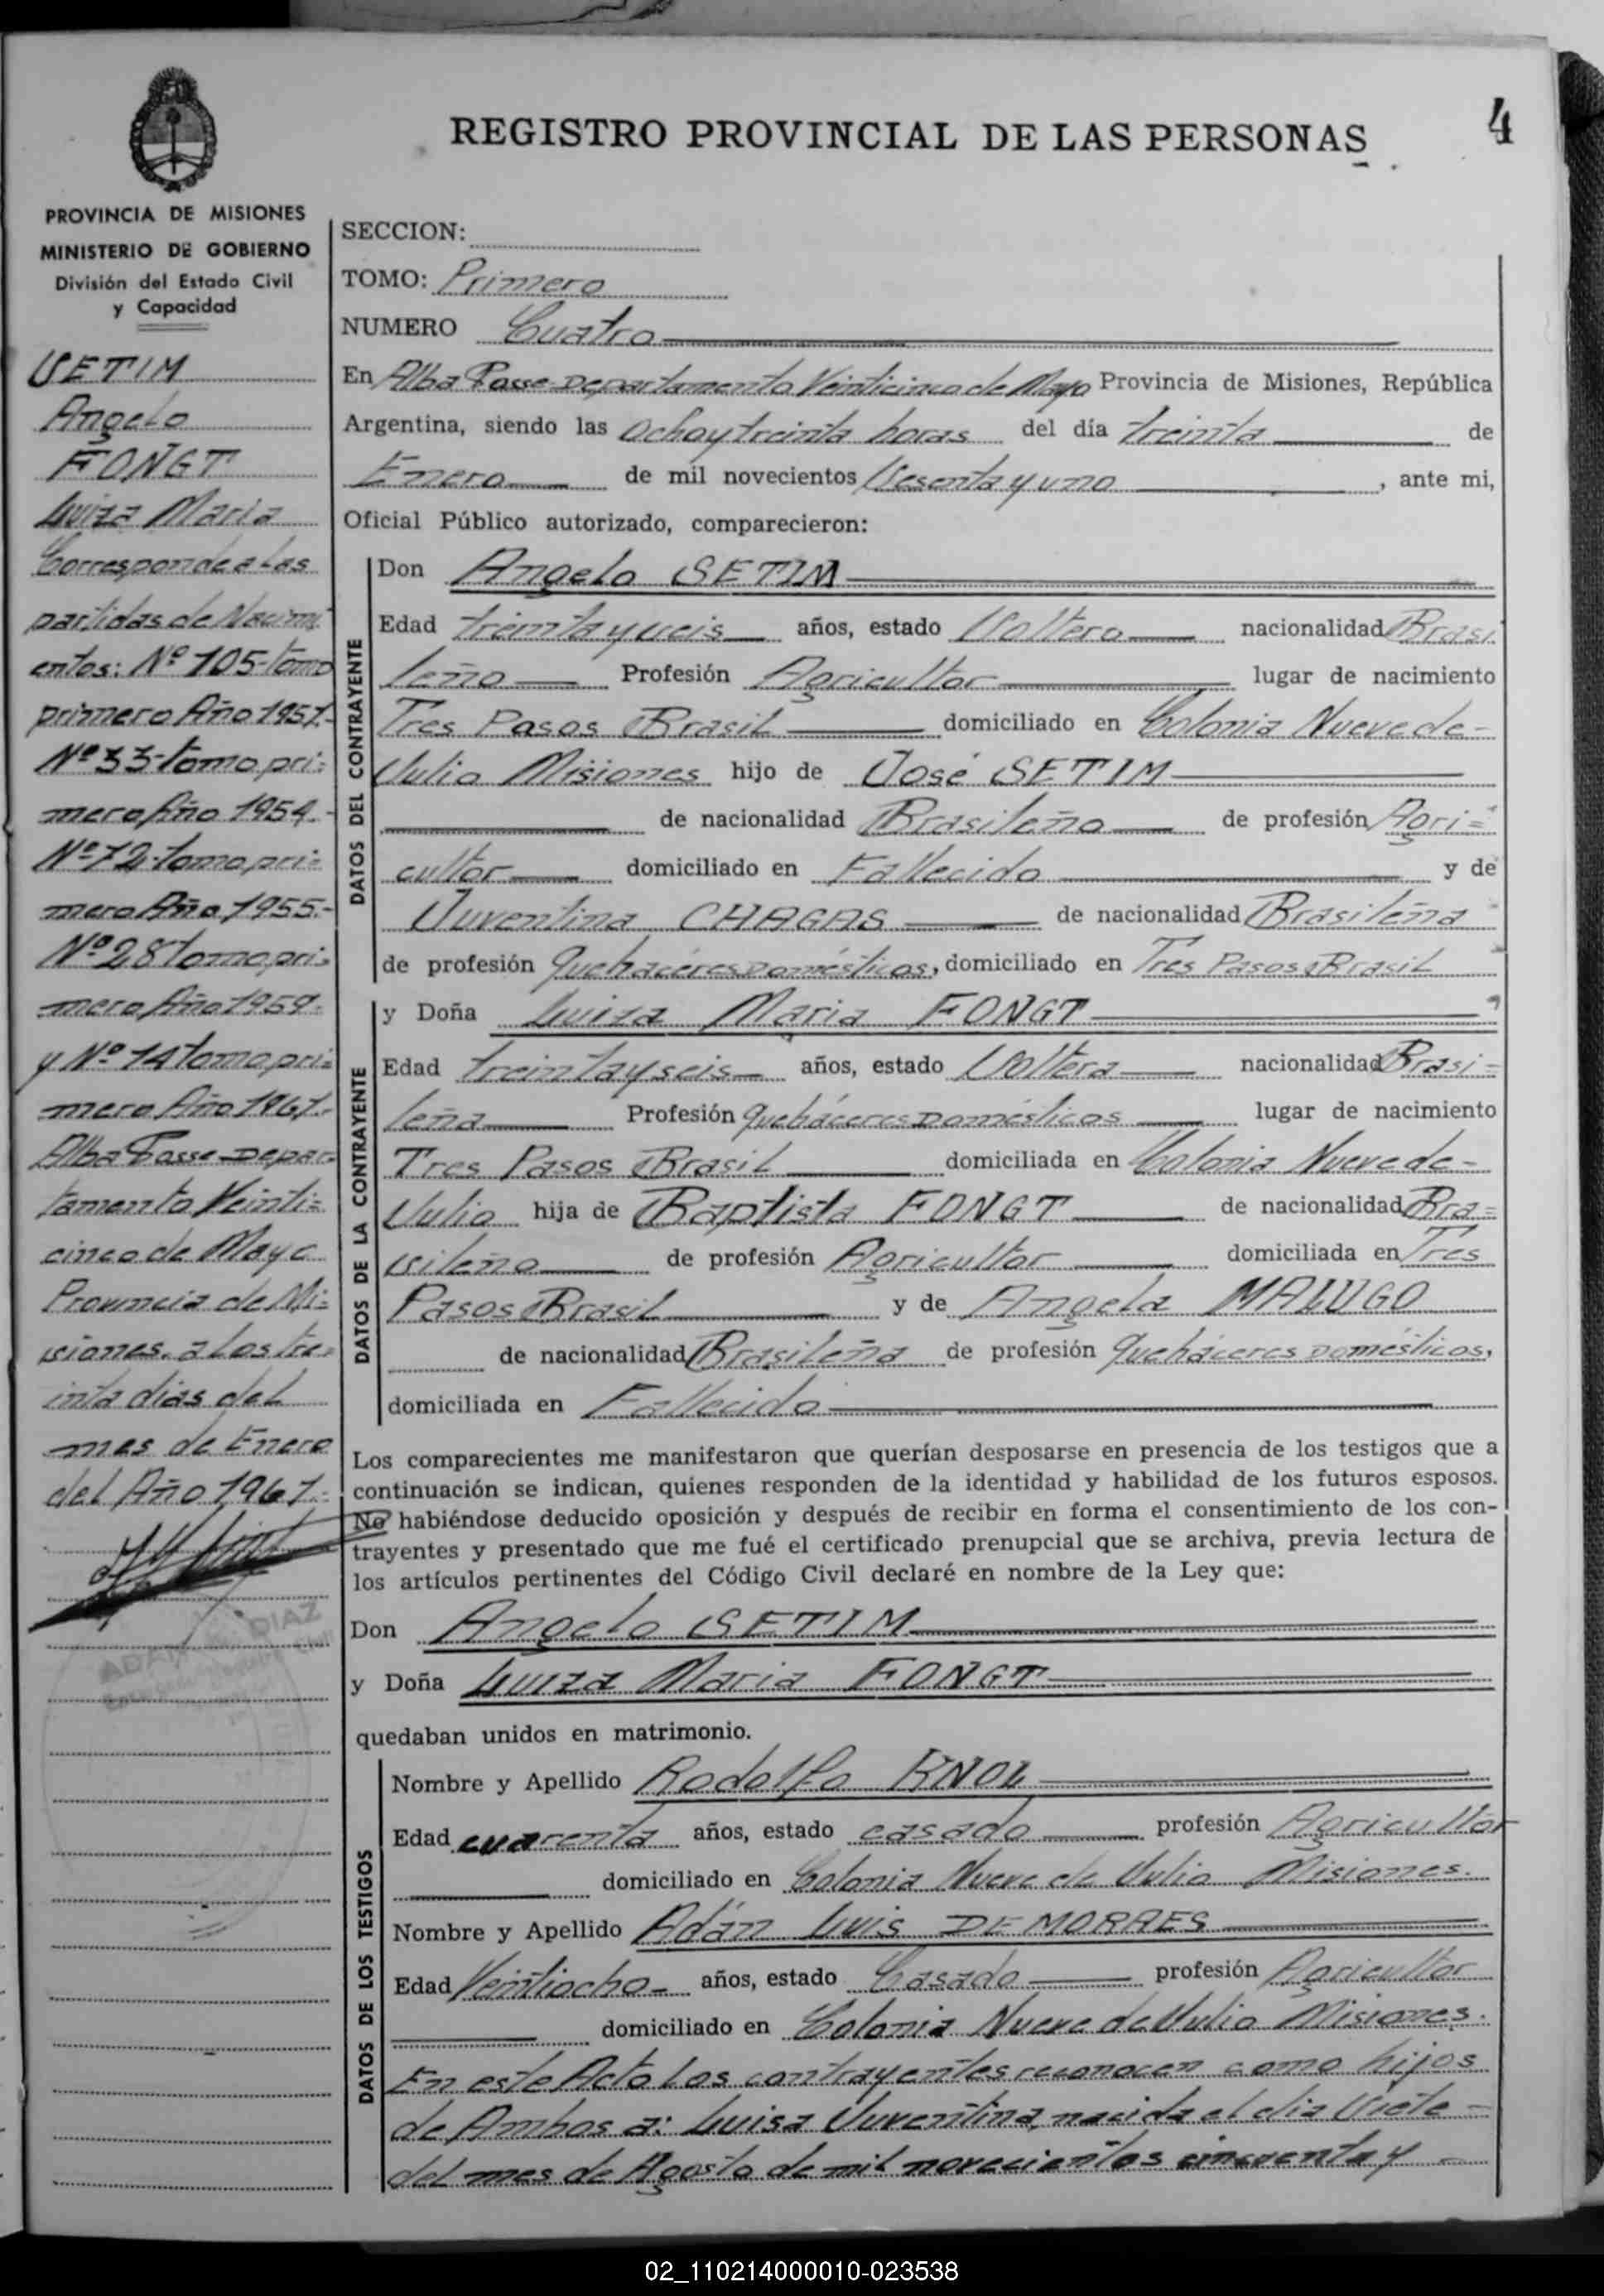 4
REGISTRO PROVINCIAL DE LAS PERSONAS
PROVINCIA DE MISIONES
MINISTERIO DE GOBIERNO
División del Estado Civil
y Capacidad
SETIM
Angelo
FONGT
Luiza Maria
Corresponde a las
partidas de Nacimi
entos: Nº 105-tomo
primero Año 1951.-
Nº 33-tomo pri=
mero Año 1954.-
Nº 72-tomo pri=
mero Año 1955.-
Nº 28 tomo pri=
mero Año 1959.
y Nº 14 tomo pri=
mero Año 1961.-
Alba Posse-Depar=
tamento Veinti=
cinco de Mayo
Provincia de Mi=
siones, a los tre=
inta dias del
mes de Enero
del Año 1961.-
DIAZ
SECCION:
TOMO: Primero
NUMERO Cuatro
En Alba Posse-Departamento Veinticinco de Mayo Provincia de Misiones, República
Argentina, siendo las Ocho y treinta horas del día treinta de
Enero de mil novecientos Sesenta y uno, ante mi,
Oficial Público autorizado, comparecieron:
DATOS DEL CONTRAYENTE
Don Angelo SETIM
Edad treinta y seis años, estado Soltero nacionalidad Brasi
leño Profesión Agricultor lugar de nacimiento
Tres Pasos Brasil domiciliado en Colonia Nueve de-
Julio Misiones hijo de José SETIM
de nacionalidad Brasileño de profesión Agri=
cultor domiciliado en Fallecido y de
Juventina CHAGAS de nacionalidad Brasileña
de profesión Quehaceres Domésticos, domiciliado en Tres Pasos Brasil
DATOS DE LA CONTRAYENTE
y Doña Luiza Maria FONGT
Edad treinta y seis años, estado Soltera nacionalidad Brasi=
leña Profesión Quehaceres Domésticos lugar de nacimiento
Tres Pasos Brasil domiciliada en Colonia Nueve de-
Julio hija de Baptista FONGT de nacionalidad Bra=
sileño de profesión Agricultor domiciliada en Tres
Pasos Brasil y de Angela MALUGO
de nacionalidad Brasileña de profesión Quehaceres Domésticos,
domiciliada en Fallecida
Los comparecientes me manifestaron que querían desposarse en presencia de los testigos que a
continuación se indican, quienes responden de la identidad y habilidad de los futuros esposos.
No habiéndose deducido oposición y después de recibir en forma el consentimiento de los con-
trayentes y presentado que me fué el certificado prenupcial que se archiva, previa lectura de
los artículos pertinentes del Código Civil declaré en nombre de la Ley que:
Don Angelo SETIM
y Doña Luiza Maria FONGT
quedaban unidos en matrimonio.
DATOS DE LOS TESTIGOS
Nombre y Apellido Rodolfo KNOL
Edad cuarenta años, estado casado profesión Agricultor
domiciliado en Colonia Nueve de Julio Misiones.
Nombre y Apellido Adán Luis DE MORAES
Edad Veintiocho- años, estado Casado profesión Agricultor
domiciliado en Colonia Nueve de Julio Misiones.
En este Acto los contrayentes reconocen como hijos
de Ambos a: Luisa Juventina, nacida el dia Siete-
del mes de Agosto de mil novecientos cincuenta y-
02_110214000010-023538